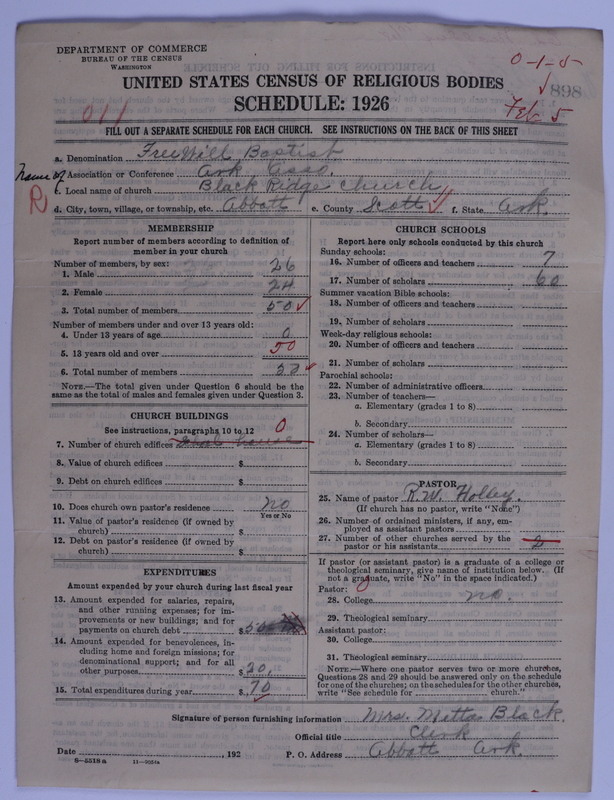 DEPARTMENT OF COMMERCE
BUREAU OF THE CENSUS
WASHINGTON
0-1-5
UNITED STATES CENSUS OF RELIGIOUS BODIES
898
SCHEDULE: 1926
011
Feb 5
FILL OUT A SEPARATE SCHEDULE FOR EACH CHURCH. SEE INSTRUCTIONS ON THE BACK OF THIS SHEET
a. Denomination FreeWill Baptist
name of
b. Association or Conference Ark Asso.
c. Local name of church Black Ridge Church
R
d. City, town, village, or township, etc. Abbott e. County Scott f. State Ark.
MEMBERSHIP
Report number of members according to definition of
member in your church
Number of members, by sex:
1. Male 26
2. Female 24
3. Total number of members 50
Number of members under and over 13 years old:
4. Under 13 years of age 0
5. 13 years old and over 50
6. Total number of members
NOTE.—The total given under Question 6 should be the
same as the total of males and females given under Question 3.
CHURCH BUILDINGS
See instructions, paragraphs 10 to 12 0
7. Number of church edifices house
8. Value of church edifices $
9. Debt on church edifices $
10. Does church own pastor's residence no
Yes or No
11. Value of pastor's residence (if owned by
church) $
12. Debt on pastor's residence (if owned by
church) $
EXPENDITURES
Amount expended by your church during last fiscal year
13. Amount expended for salaries, repairs,
and other running expenses; for im-
provements or new buildings; and for
payments on church debt $50
14. Amount expended for benevolences, in-
cluding home and foreign missions; for
denominational support; and for all
other purposes $20.
15. Total expenditures during year $70
CHURCH SCHOOLS
Report here only schools conducted by this church
Sunday schools:
16. Number of officers and teachers 7
17. Number of scholars 60
Summer vacation Bible schools:
18. Number of officers and teachers
19. Number of scholars
Week-day religious schools:
20. Number of officers and teachers
21. Number of scholars
Parochial schools:
22. Number of administrative officers
23. Number of teachers—
a. Elementary (grades 1 to 8)
b. Secondary
24. Number of scholars—
a. Elementary (grades 1 to 8)
b. Secondary
PASTOR
25. Name of pastor R.W. Holley.
(If church has no pastor, write "None")
26. Number of ordained ministers, if any, em-
ployed as assistant pastors
27. Number of other churches served by the
pastor or his assistants 2
If pastor (or assistant pastor) is a graduate of a college or
theological seminary, give name of institution below. (If
not a graduate, write "No" in the space indicated.)
Pastor:
28. College no.
29. Theological seminary
Assistant pastor:
30. College
31. Theological seminary
NOTE.—Where one pastor serves two or more churches,
Questions 28 and 29 should be answered only on the schedule
for one of the churches; on the schedules for the other churches,
write "See schedule for ________ church."
Signature of person furnishing information Mrs. Mitta Black.
Official title Clerk
Date , 192
P. O. Address Abbott Ark.
8-5518a 11-9034a